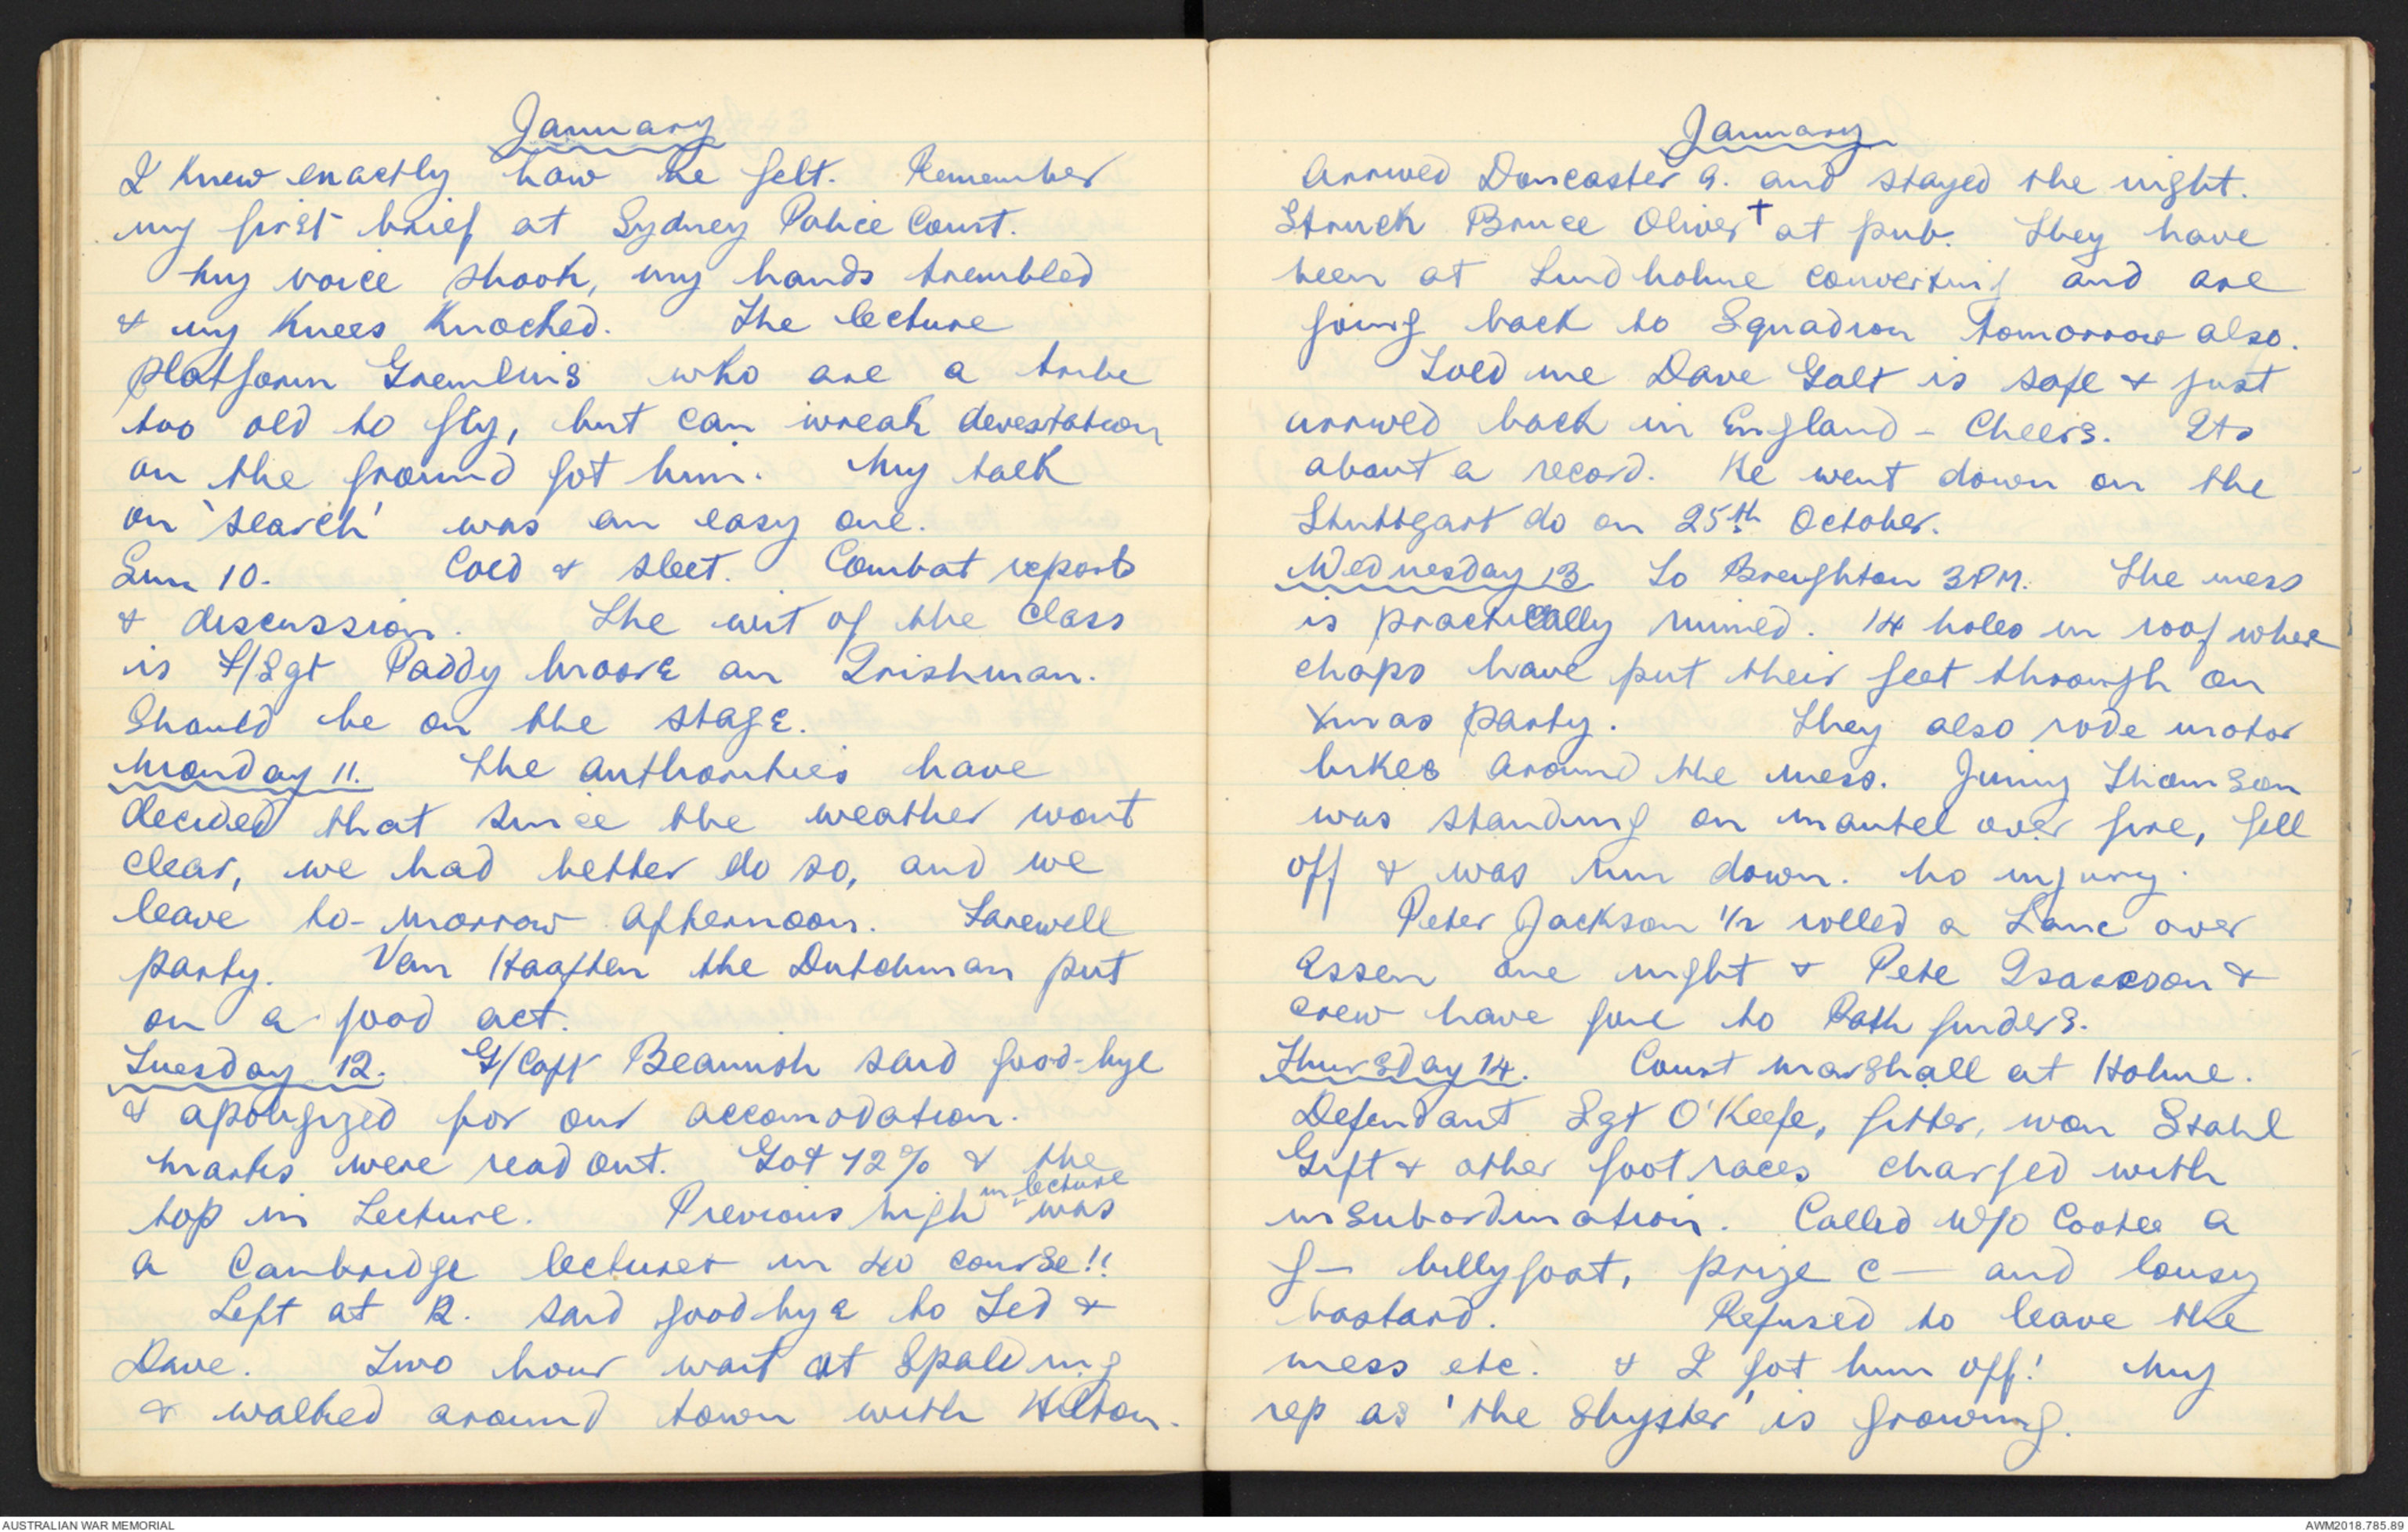 January
I knew exactly how he felt. Remember
my first brief at Sydney Police Court.
My voice shook, my hands trembled
& my knees knocked. The lecture
platform Gremlins who are a tribe
too old to fly, but can wreak devestation
on the ground got him. My talk
on 'search' was an easy one.
Sun 10. Cold & sleet. Combat reports
& discussion. The wit of the class
is F/Sgt Paddy Moore an Irishman.
Should be on the stage.
Monday 11. The authorities have
decided that since the weather wont
clear, we had better do so, and we
leave to-morrow afternoon. Farewell
party. Van Haaften the Dutchman put
on a good act.
Tuesday 12. G/Capt Beamish said good-bye
& apologized for our accomodation.
Marks were read out. Got 72% & the
top in Lecture. Previous high in lecture was
a Cambridge lecturer in 40 course!!
Left at 12. Said goodbye to Ted &
Dave. Two hour wait at Spalding
& walked around town with Hilton.
January
Arrived Doncaster 9. and stayed the night.
Struck Bruce Oliver + at pub. They have
been at Lindholme converting and are
going back to Squadron tomorrow also.
Told me Dave Galt is safe & just
arrived back in England - Cheers. Its
about a record. He went down on the
Stuttgart do on 25th October.
Wednesday 13 To Breighton 3PM. The mess
is practically ruined. 14 holes in roof where
chaps have put their feet through on
Xmas party. They also rode motor
bikes around the mess. Jimmy Thomson
was standing on mantel over fire, fell
off & was run down. No injury.
Peter Jackson 1/2 rolled a Lanc over
Essen one night & Pete Isaacson &
crew have gone to Path finders.
Thursday 14. Court marshall at Holme.
Defendant Sgt O'Keefe, fitter, won Stawl
Gift & other foot races charged with
insubordination. Called W/O Cootes a
f— billygoat, prize c— and lousy
bastard. Refused to leave the
mess etc. & I got him off! My
rep as 'the Shyster' is growing.
AUSTRALIAN WAR MEMORIAL
AWM2018.785.89